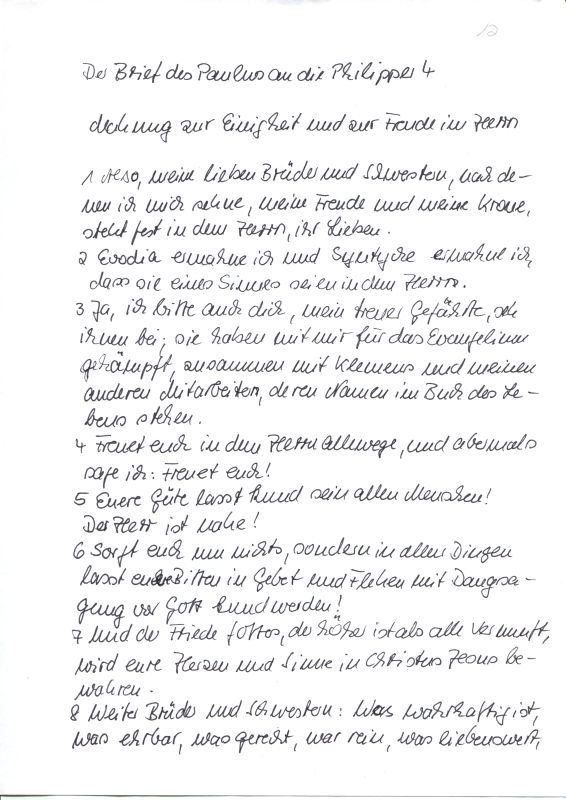 12
Der Brief des Paulus an die Philipper 4
Mahnung zur Einigkeit und zur Freude im Herrn
1 Also, meine lieben Brüder und Schwestern, nach de-
nen ich mich sehne, meine Freude und meine Krone,
steht fest in dem Herrn, ihr Lieben.
2 Evodia ermahne ich und Syntyche ermahne ich,
dass sie eines Sinnes seien in dem Herrn.
3 Ja, ich bitte auch dich, mein treuer Gefährte, steh
ihnen bei; sie haben mit mir für das Evangelium
gekämpft, zusammen mit Klemens und meinen
anderen Mitarbeitern, deren Namen im Buch des Le-
bens stehen.
4 Freuet euch in dem Herrn allewege, und abermals
sage ich: Freuet euch!
5 Eure Güte lasst kund sein allen Menschen!
Der Herr ist nahe!
6 Sorgt euch um nichts, sondern in allen Dingen
lasst eure Bitten in Gebet und Flehen mit Danksa-
gung vor Gott kundwerden!
7 Und der Friede Gottes, der höher ist als alle Vernunft,
wird eure Herzen und Sinne in Christus Jesus be-
wahren.
8 Weiter Brüder und Schwestern: Was wahrhaftig ist,
was ehrbar, was gerecht, war rein, was liebenswert,